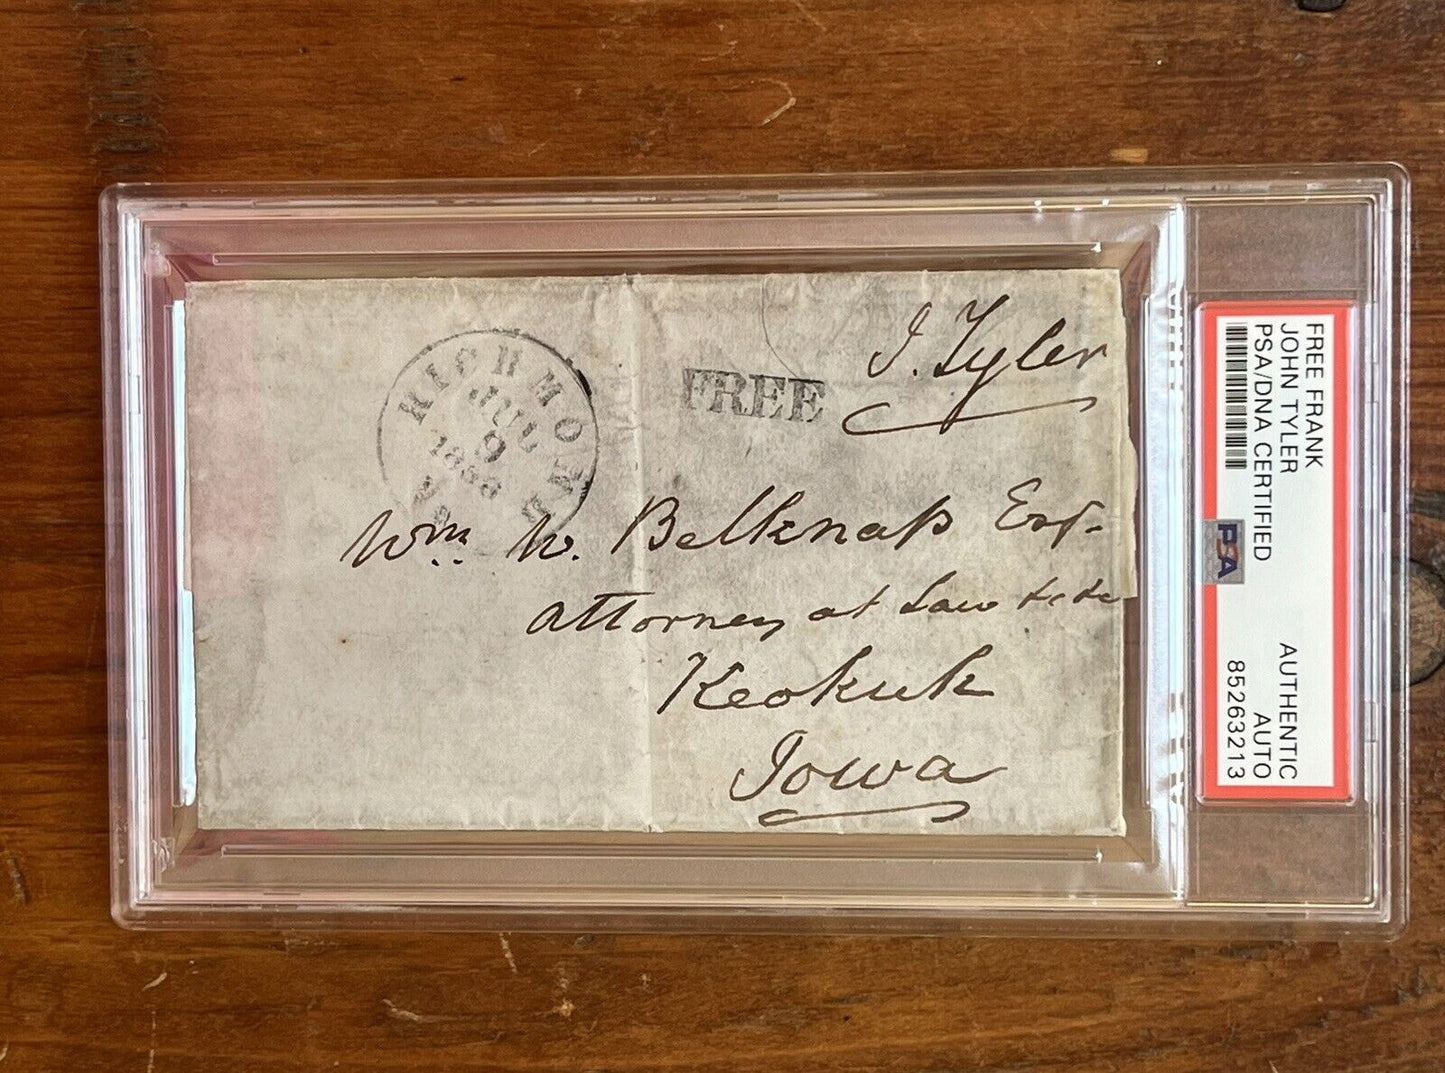 RICHMOND
JUL
9
FREE
J. Tyler
Wm. W. Belknap Esq.
Attorney at Law
Keokuk
Iowa
FREE FRANK
JOHN TYLER
PSA/DNA CERTIFIED
PSA
AUTHENTIC
AUTO
85263213